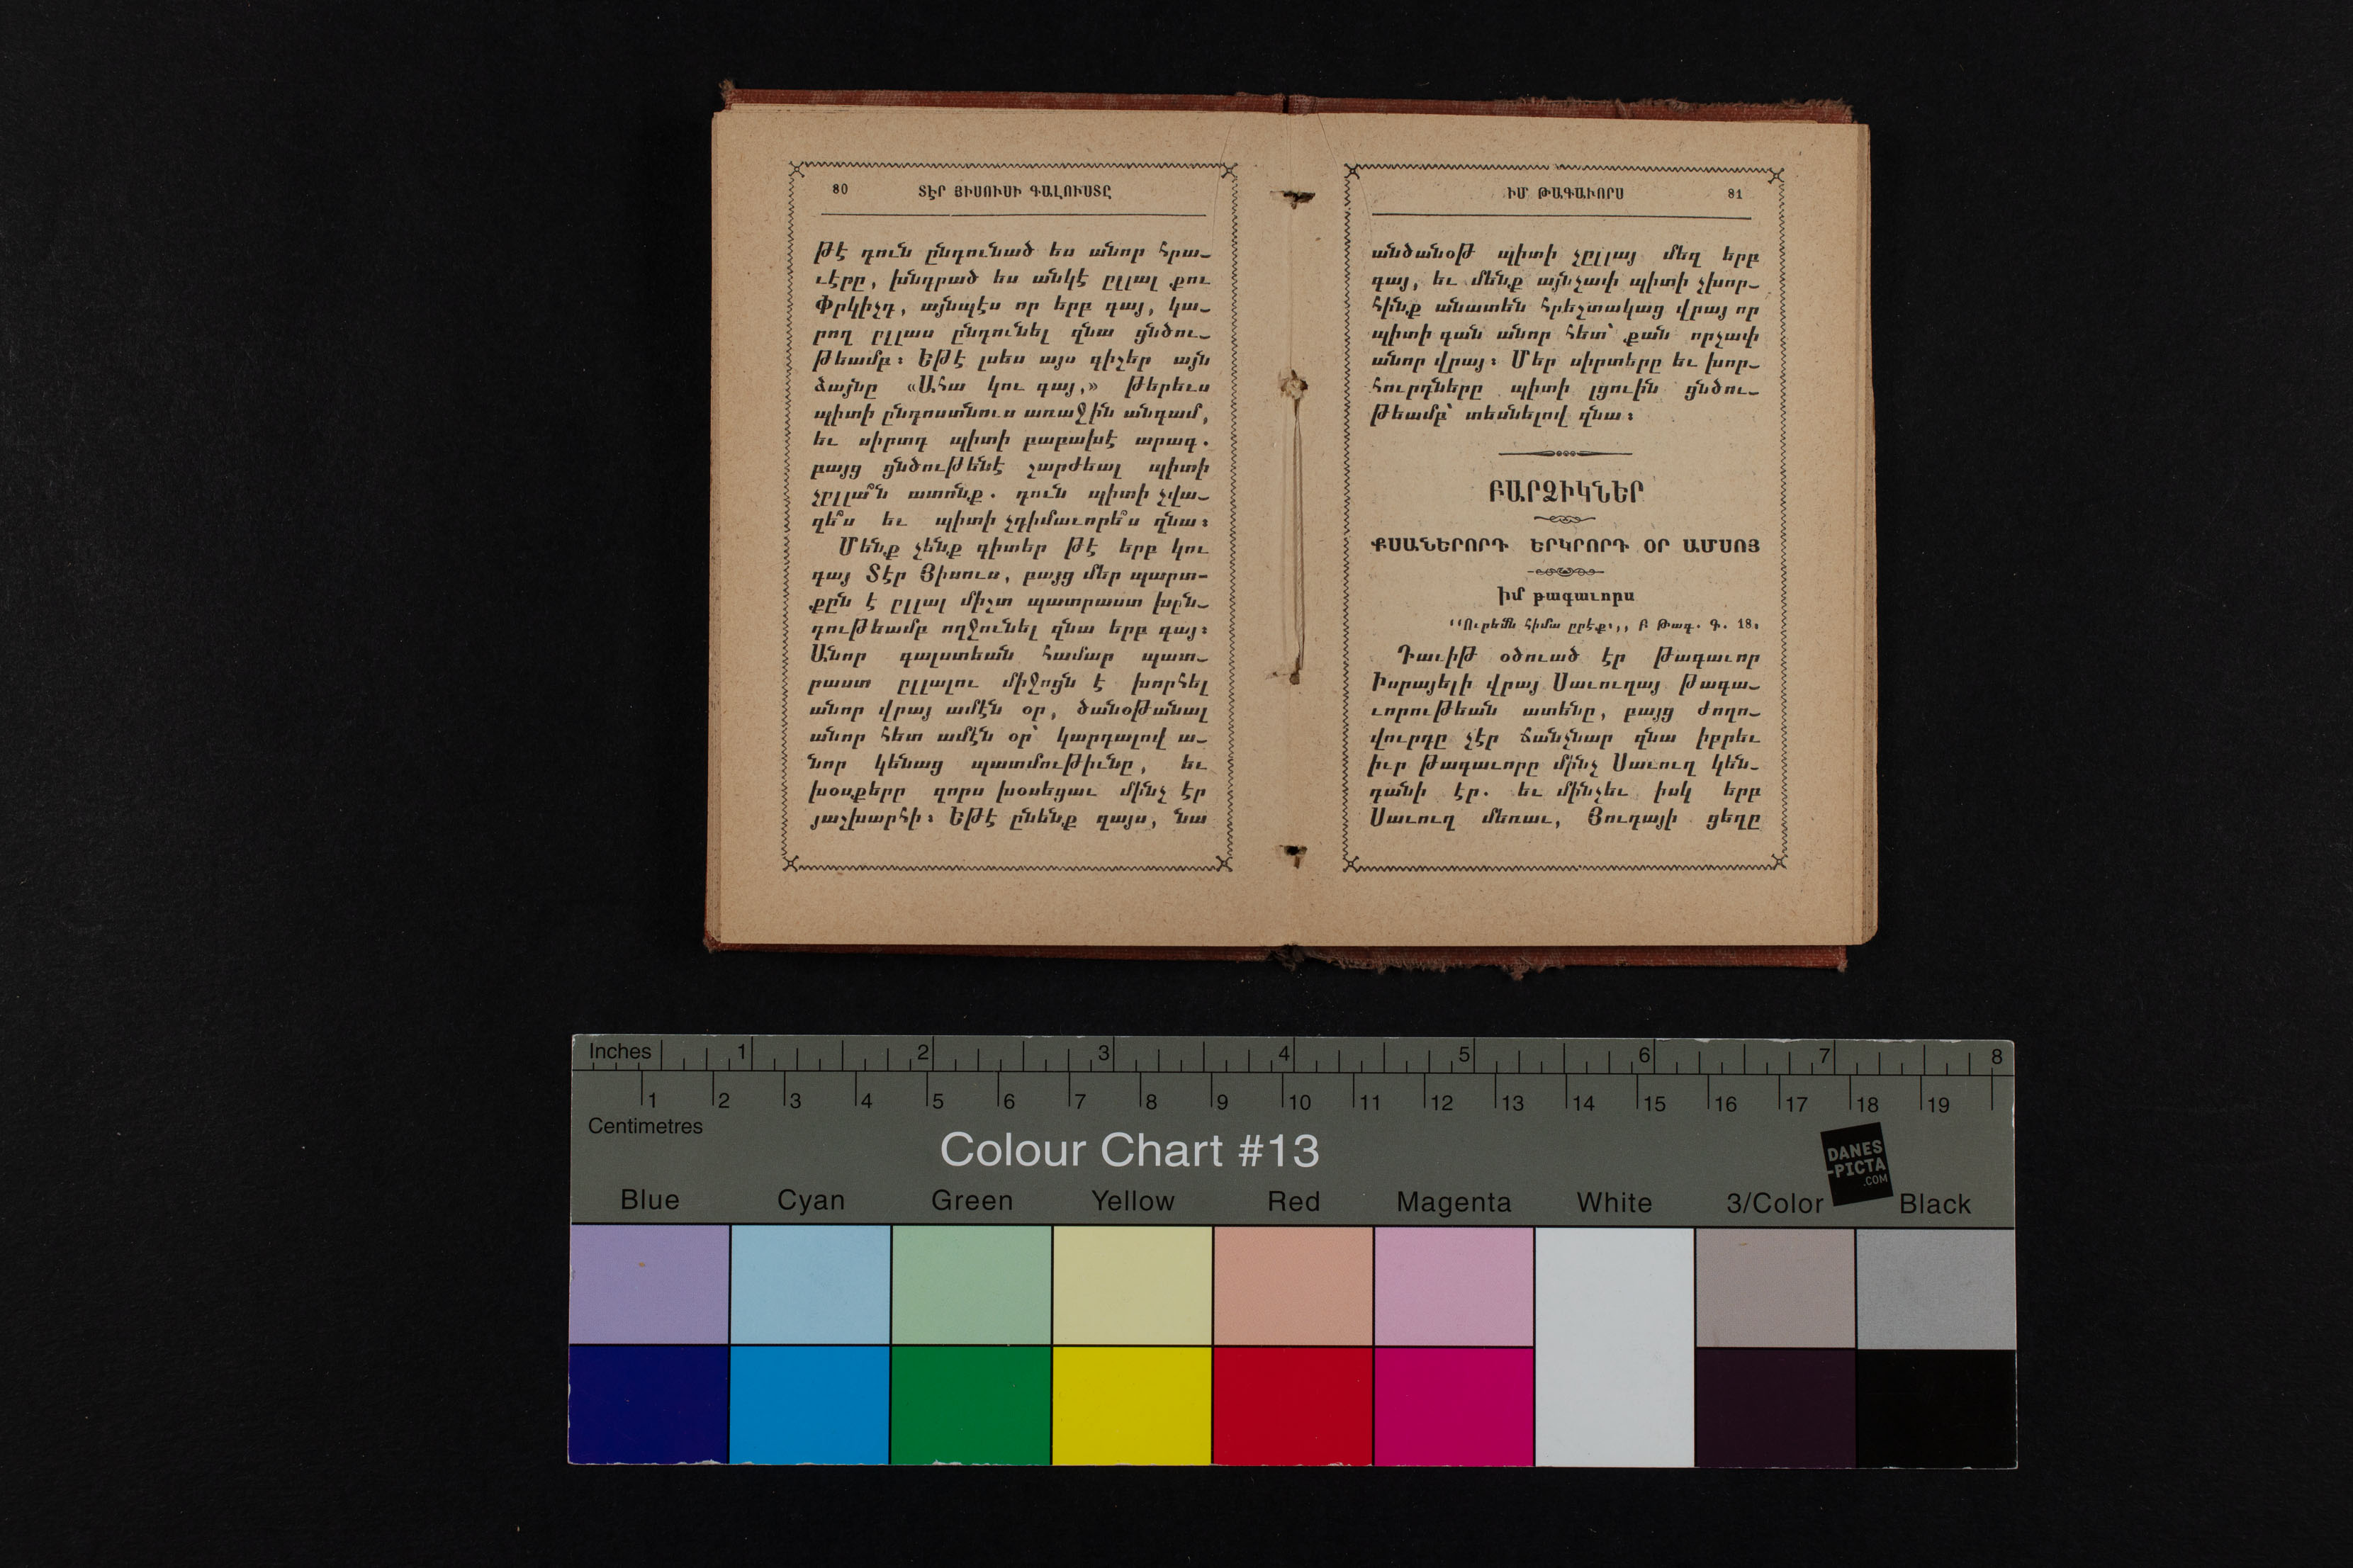 80 ՏԷՐ ՅԻՍՈՒՍԻ ԳԱԼՈՒՍՏԸ
թէ դուն ընդունած ես անոր հրա-
ւէրը, խնդրած ես անկէ ըլլալ քու
Փրկիչդ, այնպէս որ երբ գայ, կա-
րող ըլլաս ընդունել զնա ցնծու-
թեամբ։ Եթէ լսես այս գիշեր այն
ձայնը «Ահա կու գայ,» թերեւս
պիտի ընդոստնուս առաջին անգամ,
եւ սիրտդ պիտի բաբախէ արագ.
բայց ցնծութենէ շարժեալ պիտի
չըլլա՞ն ատոնք. դուն պիտի չվա-
զե՞ս եւ պիտի չդիմաւորե՞ս զնա։
Մենք չենք գիտեր թէ երբ կու
գայ Տէր Յիսուս, բայց մեր պարտ-
քըն է ըլլալ միշտ պատրաստ խըն-
դութեամբ ողջունել զնա երբ գայ։
Անոր գալստեան համար պատ-
րաստ ըլլալու միջոցն է խորհել
անոր վրայ ամէն օր, ծանօթանալ
անոր հետ ամէն օր՝ կարդալով ա-
նոր կենաց պատմութիւնը, եւ
խօսքերը զորս խօսեցաւ մինչ էր
յաշխարհի։ Եթէ ընենք զայս, նա
ԻՄ ԹԱԳԱՒՈՐՍ 81
անծանօթ պիտի չըլլայ մեզ երբ
գայ, եւ մենք այնչափ պիտի չխոր-
հինք անատեն հրեշտակաց վրայ որ
պիտի գան անոր հետ՝ քան որչափ
անոր վրայ։ Մեր սիրտերը եւ խոր-
հուրդները պիտի լցուին ցնծու-
թեամբ՝ տեսնելով զնա։
ԲԱՐՁԻԿՆԵՐ
ՔՍԱՆԵՐՈՐԴ ԵՐԿՐՈՐԴ ՕՐ ԱՄՍՈՅ
Իմ թագաւորս
‘‘Ուրեմն հիմա ըրէք,,, Բ Թագ. Գ. 18։
Դաւիթ օծուած էր թագաւոր
Իսրայելի վրայ Սաւուղայ թագա-
ւորութեան ատենը, բայց ժողո-
վուրդը չէր ճանչնար զնա իբրեւ
իւր թագաւորը մինչ Սաւուղ կեն-
դանի էր. եւ մինչեւ իսկ երբ
Սաւուղ մեռաւ, Յուդայի ցեղը
Inches 1 2 3 4 5 6 7 8
1 2 3 4 5 6 7 8 9 10 11 12 13 14 15 16 17 18 19
Centimetres
Colour Chart #13
DANES
-PICTA
.COM
Blue Cyan Green Yellow Red Magenta White 3/Color Black